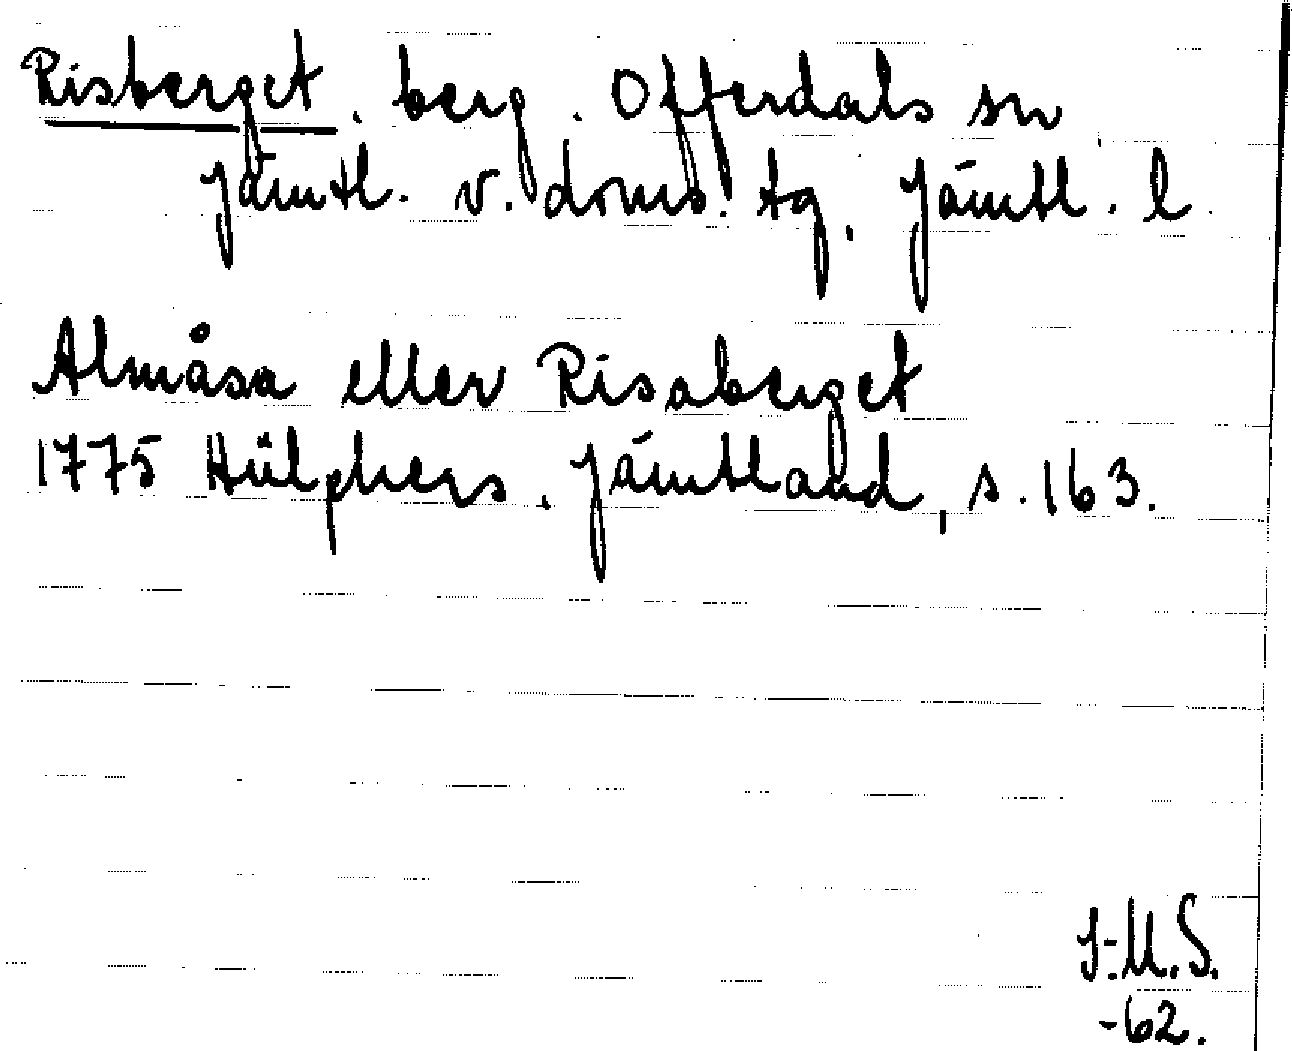 Risberget. berg. Offerdals sn
Jämtl. v. doms. tg, Jämtl. l.
Almåsa eller Risaberget
1775 Hülphers. Jämtland, s. 163.
J-U.S.
-62.